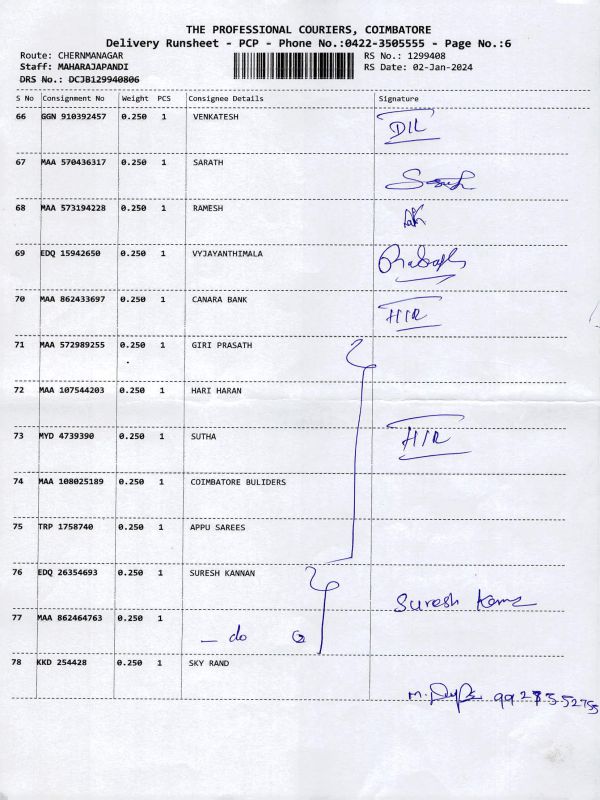 THE PROFESSIONAL COURIERS, COIMBATORE
Delivery Runsheet - PCP - Phone No.:0422-3505555 - Page No.:6
Route: CHERNMANAGAR RS No.: 1299408
Staff: MAHARAJAPANDI RS Date: 02-Jan-2024
DRS No.: DCJB129940806
S No Consignment No Weight PCS Consignee Details Signature
66 GGN 910392457 0.250 1 VENKATESH
67 MAA 570436317 0.250 1 SARATH
68 MAA 573194228 0.250 1 RAMESH
69 EDQ 15942650 0.250 1 VYJAYANTHIMALA
70 MAA 862433697 0.250 1 CANARA BANK
71 MAA 572989255 0.250 1 GIRI PRASATH
72 MAA 107544203 0.250 1 HARI HARAN
73 MYD 4739390 0.250 1 SUTHA
74 MAA 108025189 0.250 1 COIMBATORE BULIDERS
75 TRP 1758740 0.250 1 APPU SAREES
76 EDQ 26354693 0.250 1 SURESH KANNAN
Suresh
77 MAA 862464763 0.250 1
do
78 KKD 254428 0.250 1 SKY RAND